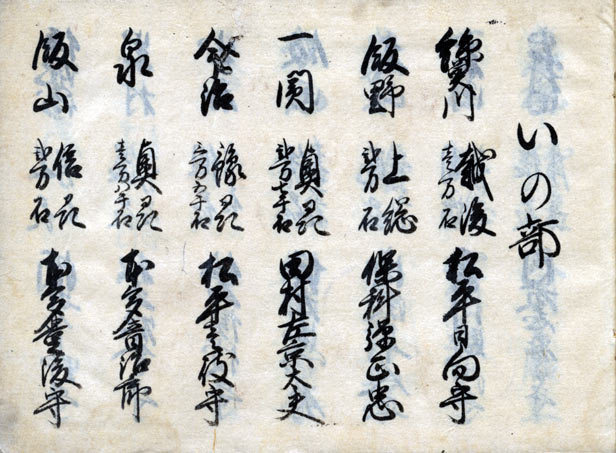 いの部
絲魚川 越後 壱万石 松平日向守
飯野 上総 弐万石 保科弾正忠
一関 奥州 弐万七千石 田村左京大夫
今治 豫州 三万五千石 松平壱岐守
泉 奥州 壱万八千石 本多
飯山 信州 弐万石 本多豊後守